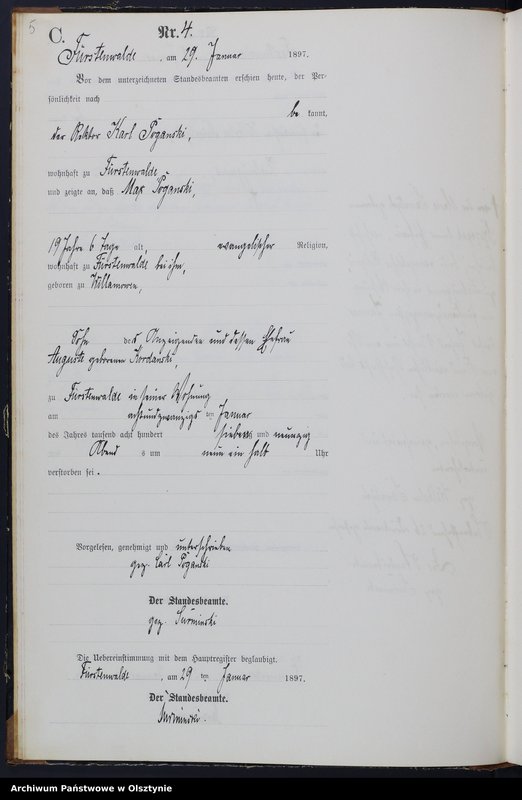 5
C.
Nr. 4.
Fürstenwalde, am 29. Januar 1897.
Vor dem unterzeichneten Standesbeamten erschien heute, der Per-
sönlichkeit nach
be kannt,
der Rektor Karl Poganski,
wohnhaft zu Fürstenwalde
und zeigte an, daß Max Poganski,
19 Jahre 6 Tage alt, evangelischer Religion,
wohnhaft zu Fürstenwalde bei ihm,
geboren zu Willamowen,
Sohn des Anzeigenden und dessen Ehefrau
Auguste geborenen
zu Fürstenwalde in seiner Wohnung
am achtundzwanzigs ten Januar
des Jahres tausend acht hundert sieben und neunzig
Abend s um neun ein halb Uhr
verstorben sei.
Vorgelesen, genehmigt und unterschrieben
gez. Carl Poganski
Der Standesbeamte.
gez. Surminski
Die Uebereinstimmung mit dem Hauptregister beglaubigt.
Fürstenwalde, am 29 ten Januar 1897.
Der Standesbeamte.
Surminski.
Archiwum Państwowe w Olsztynie